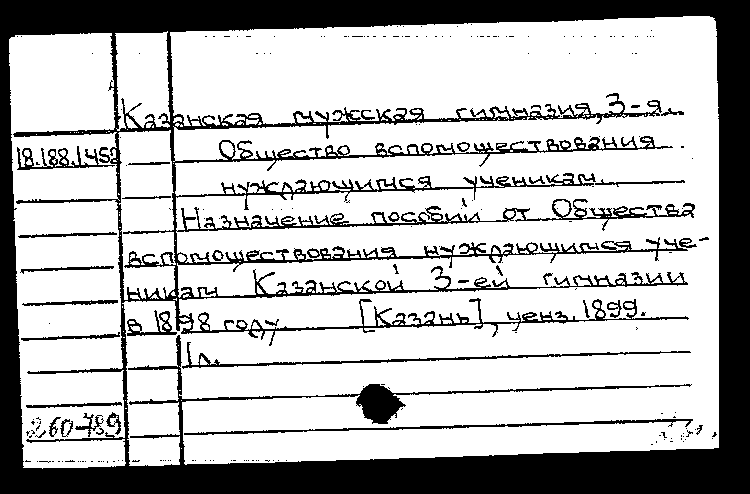 Казанская мужская гимназия, 3-я.
18.188.1452 Общество вспомоществования
нуждающимся ученикам.
Назначение пособий от Общества
вспомоществования нуждающимся уче-
никам Казанской 3-ей гимназии
в 1898 году. [Казань], ценз. 1899.
1 л.
260-789